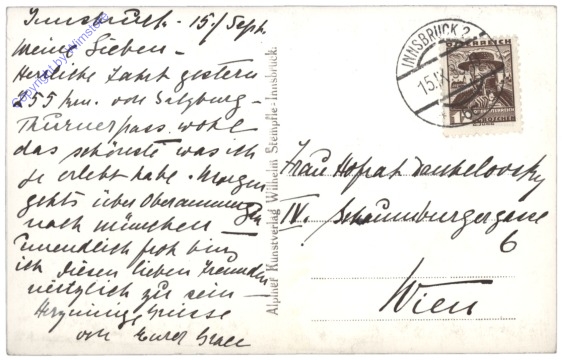 Innsbruck – 15/Sept.
Meine Lieben –
Herrliche Fahrt gestern
255 km. von Salzburg –
Thurnerpass wohl
das schönste was ich
je erlebt habe. Morgen
gehts über Oberammergau
nach München –
unendlich froh bin
ich diesen lieben Freunden
nützlich zu sein –
Grüsse
von
Copyright by Nimstore
Alpiner Kunstverlag Wilhelm Stempfle-Innsbruck.
INNSBRUCK 2
15.IX
ÖSTERREICH
Frau Hofrat
IV. Schaumburgergasse
6
Wien